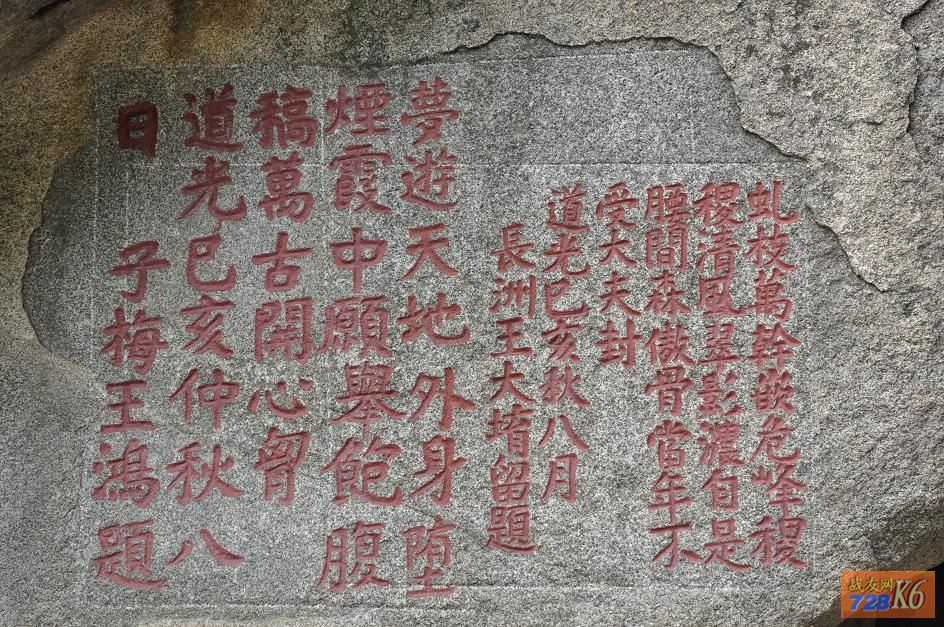 虬枝萬幹嵌危峰稷
稷清風翠影濃自是
腰間森傲骨當年不
受大夫封
道光己亥秋八月
長洲王大堉留題
夢遊天地外身堕
煙霞中願舉飽腹
稿萬古開心胷
道光己亥仲秋八
日 子梅王鴻題
战友网
728K6